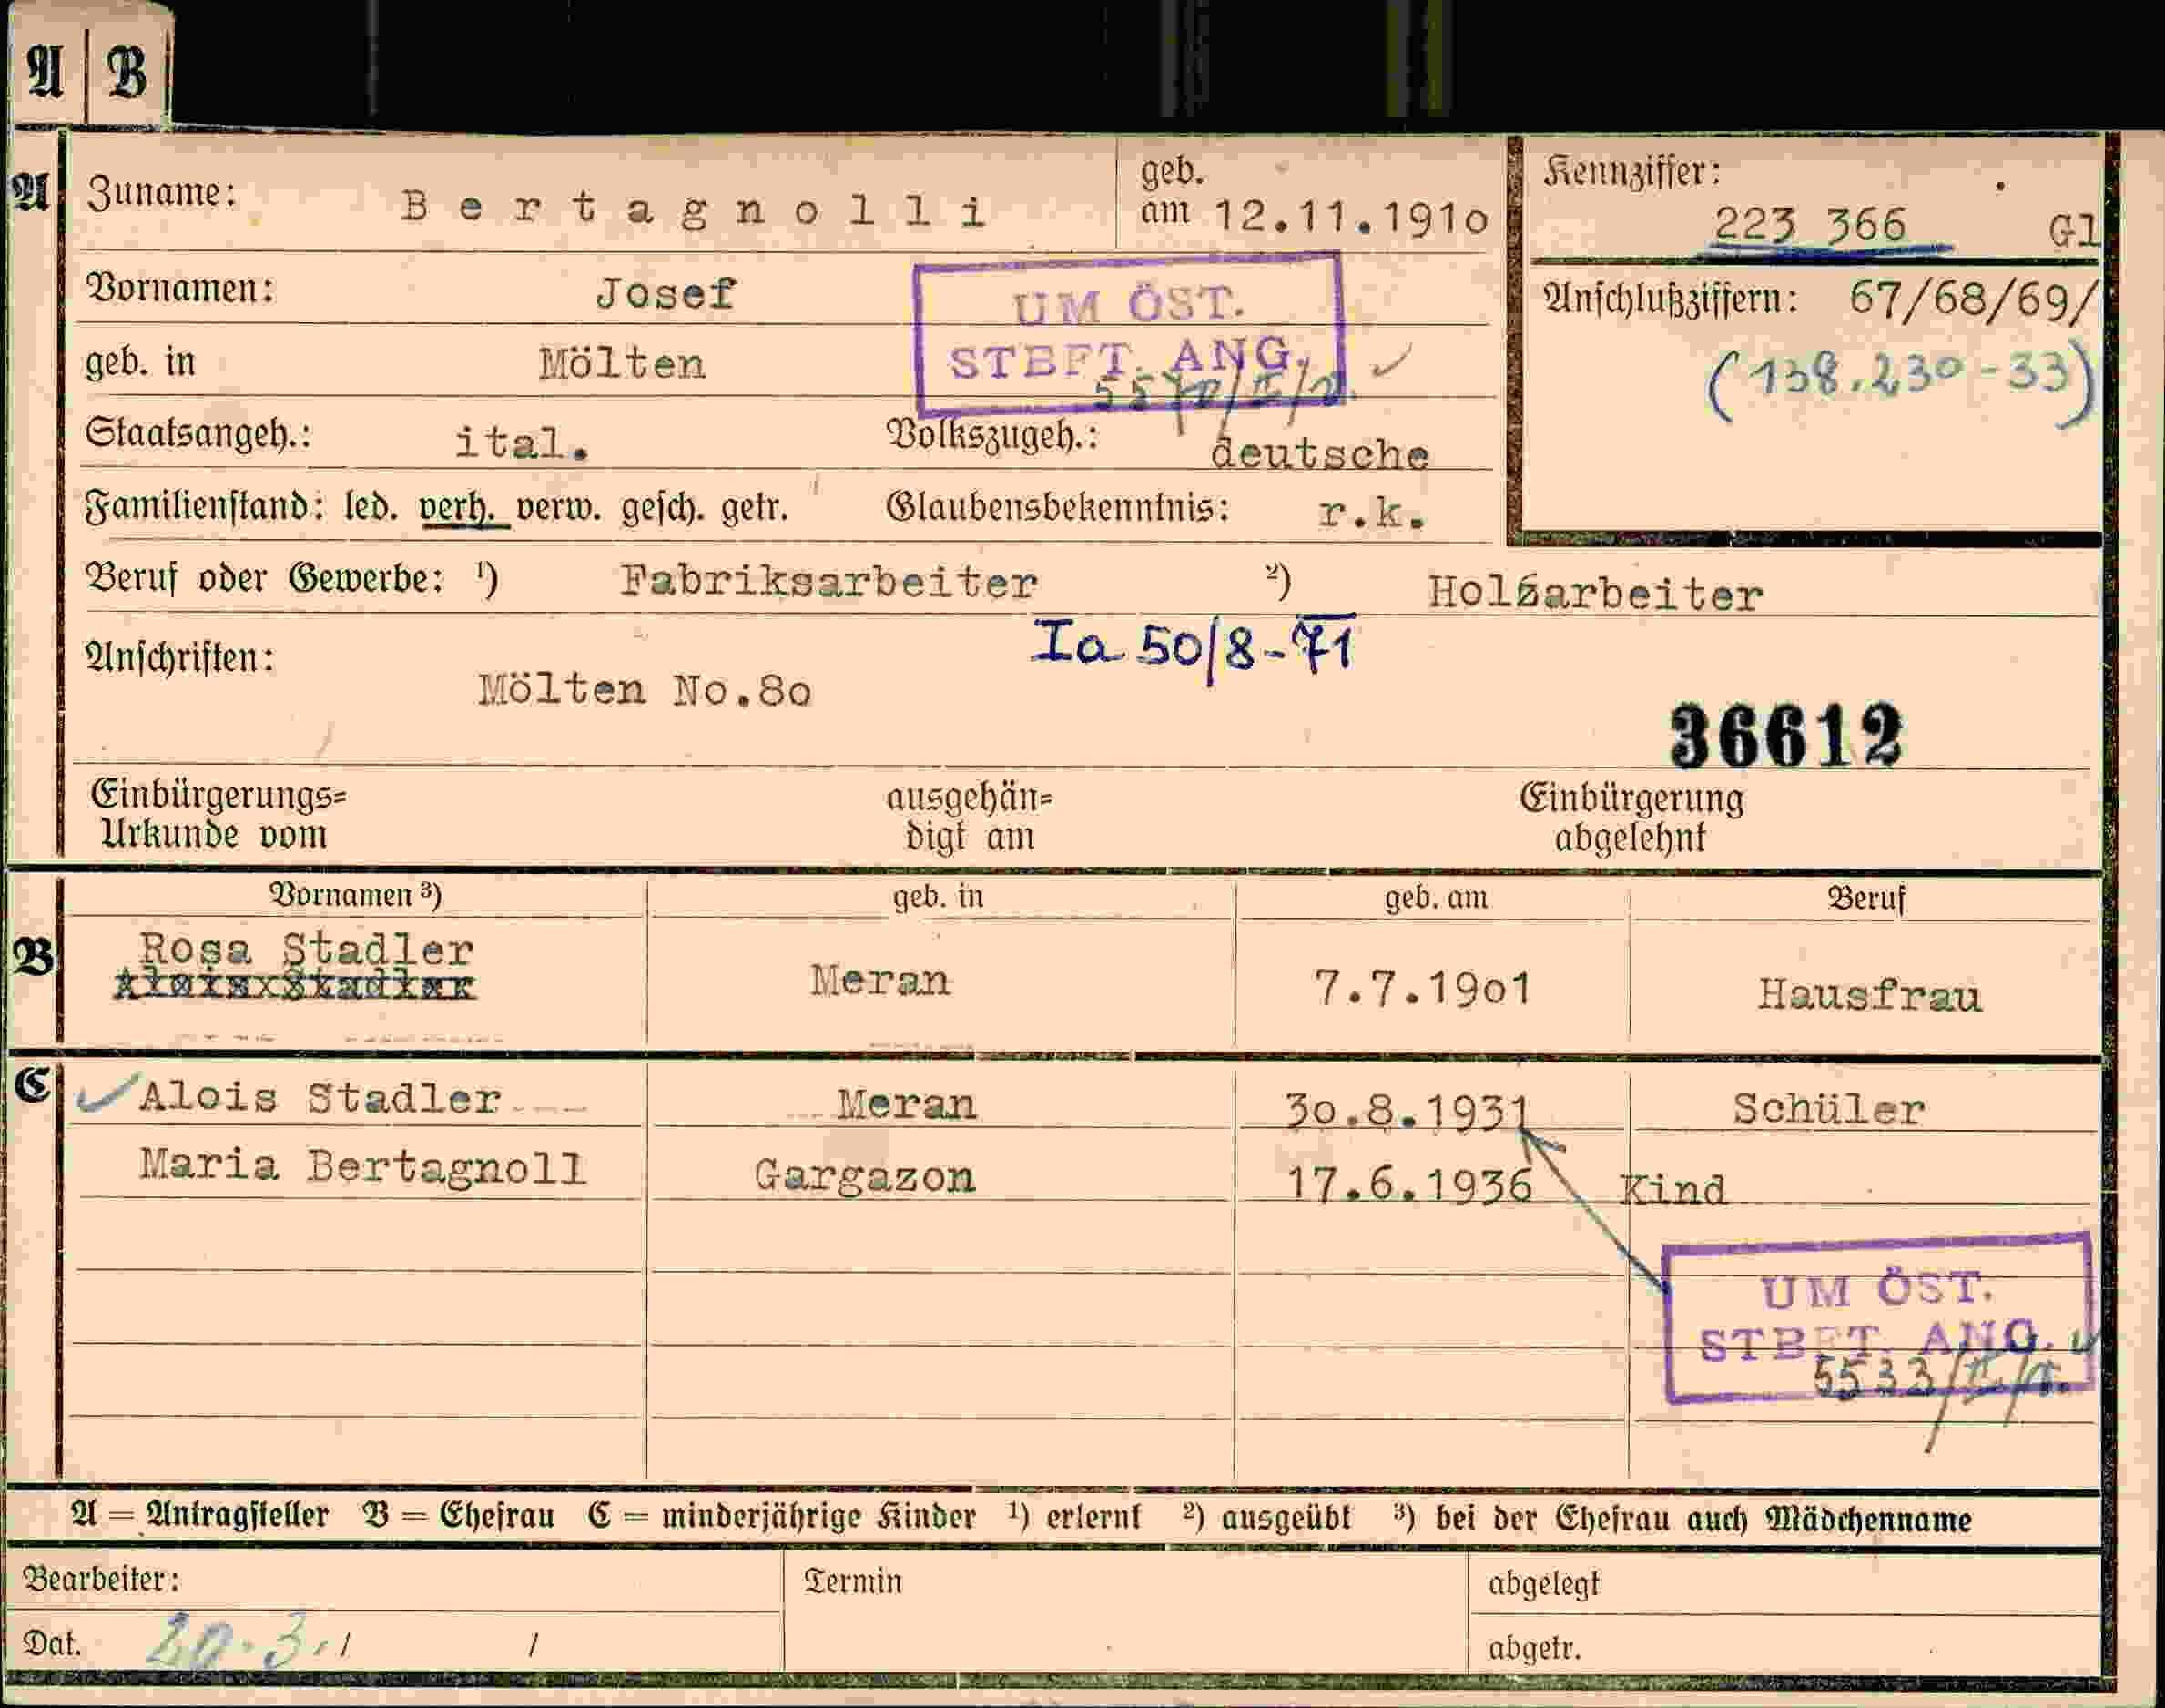 A B
A Zuname: Bertagnolli geb. am 12.11.1910 Kennziffer: 223 366 Gl
Vornamen: Josef UM ÖST. Anschlußziffern: 67/68/69/
geb. in Mölten STBFT. ANG. (138.230-33)
Staatsangeh.: ital. Volkszugeh.: deutsche
Familienstand: led. verh. verw. gesch. getr. Glaubensbekenntnis: r.k.
Beruf oder Gewerbe: 1) Fabriksarbeiter 2) Holzarbeiter
Ia 50/8-71
Anschriften: Mölten No.80
36612
Einbürgerungs= ausgehän= Einbürgerung
Urkunde vom digt am abgelehnt
Vornamen 3) geb. in geb. am Beruf
B Rosa Stadler Meran 7.7.1901 Hausfrau
Alois Stadler
C Alois Stadler Meran 30.8.1931 Schüler
Maria Bertagnoll Gargazon 17.6.1936 Kind
UM ÖST.
STBFT. ANG.
5533/
A = Antragsteller B = Ehefrau C = minderjährige Kinder 1) erlernt 2) ausgeübt 3) bei der Ehefrau auch Mädchenname
Bearbeiter: Termin abgelegt
Dat. 20.3. / / abgetr.